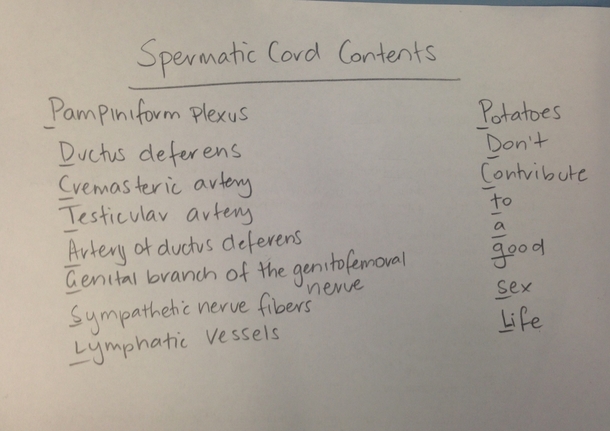 Spermatic Cord Contents
Pampiniform plexus
Potatoes
Ductus deferens
Don't
Cremasteric artery
Contribute
Testicular artery
to
Artery of ductus deferens
a
Genital branch of the genitofemoral
nerve
good
Sympathetic nerve fibers
sex
Lymphatic vessels
Life